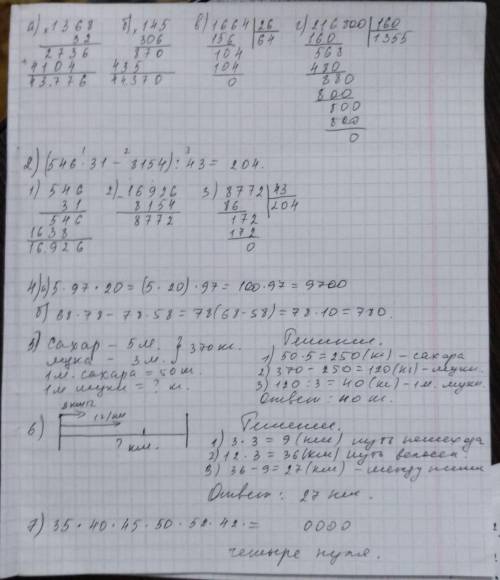 а) × 1368 б) × 145 в) 1664 | 26 г) 216800 | 160
32 306 156 64 160 1355
2736 870 104 568
+ 4104 435 104 480
43.776 44370 0 880
800
800
800
0
2) (546 · 31 - 8154) : 43 = 204.
1) 546 2) - 16926 3) 8772 | 43
31 8154 86 204
546 8772 172
1638 172
16.926 0
4) а) 5 · 97 · 20 = (5 · 20) · 97 = 100 · 97 = 9700
б) 68 · 78 - 78 · 58 = 78(68-58) = 78 · 10 = 780.
5) Сахар - 5 м. } 370 кг. Решение.
мука - 3 м. 1) 50 · 5 = 250 (кг) - сахара
1 м. сахара = 50 кг. 2) 370 - 250 = 120 (кг) - муки.
1 м муки = ? кг. 3) 120 : 3 = 40 (кг) - 1 м. муки.
Ответ: 40 кг.
12/км
6) ? км. Решение.
1) 3 · 3 = 9 (км) путь пешехода
2) 12 · 3 = 36 (км) путь велосип.
3) 36 - 9 = 27 (км) - между ними
Ответ: 27 км.
7) 35 · 40 · 45 · 50 · 52 · 42 · = 0000
четыре нуля.